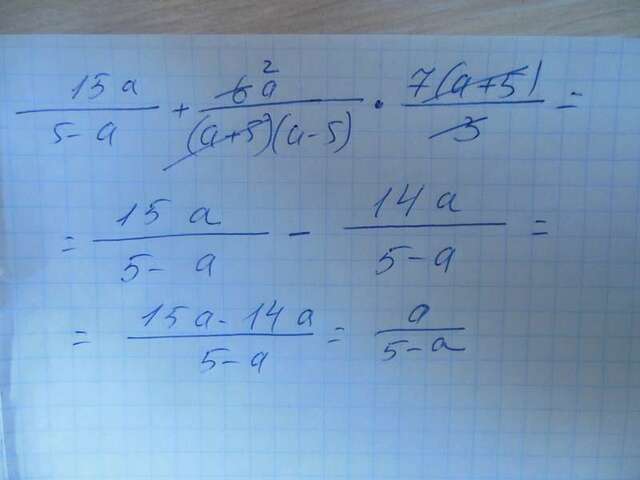 15a/(5-a) + 6̶ 2 a/((a+5)(a-5)) · 7(a+5)/3 =
= 15a/(5-a) - 14a/(5-a) =
= (15a-14a)/(5-a) = a/(5-a)